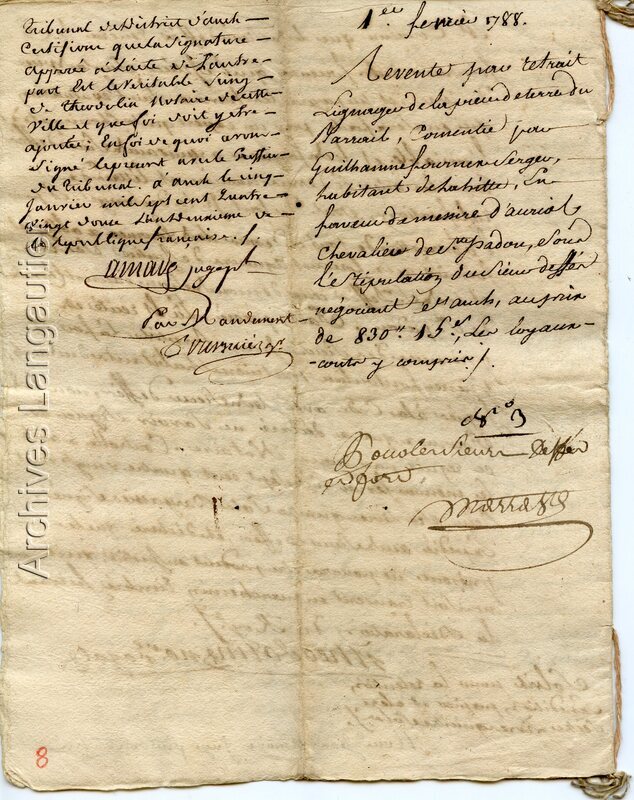 Tribunal de District d'auch
Certifions que la signature
apposée à l'acte de l'autre
part Est le véritable Seing
de Theodolin Notaire de cette
Ville et que foi doit y etre
ajoutée; En foi de quoi avons
signé le present avec le Greffier
du Tribunal. à auch le cinq
Janvier mil Sept cent Quatre
vingt douze Lan deuxieme de
la Republique française ./.
amade jugept
Par Mandement
1er fevrier 1788.
Revente par retrait
Lignager de la piece de terre du
Barrail, Consentie par
Guilhaume fournex Serger,
habitant de labritte, En
faveur de messire d'auriol
chevalier de St. padou, Sous
la Stipulation du Sieur deffés
négociant d'auch, au prix
de 830tt 15s, Les loyaux
couts y compris ./.
No 3
Pour le Sieur Deffés
Archives Langautier
8